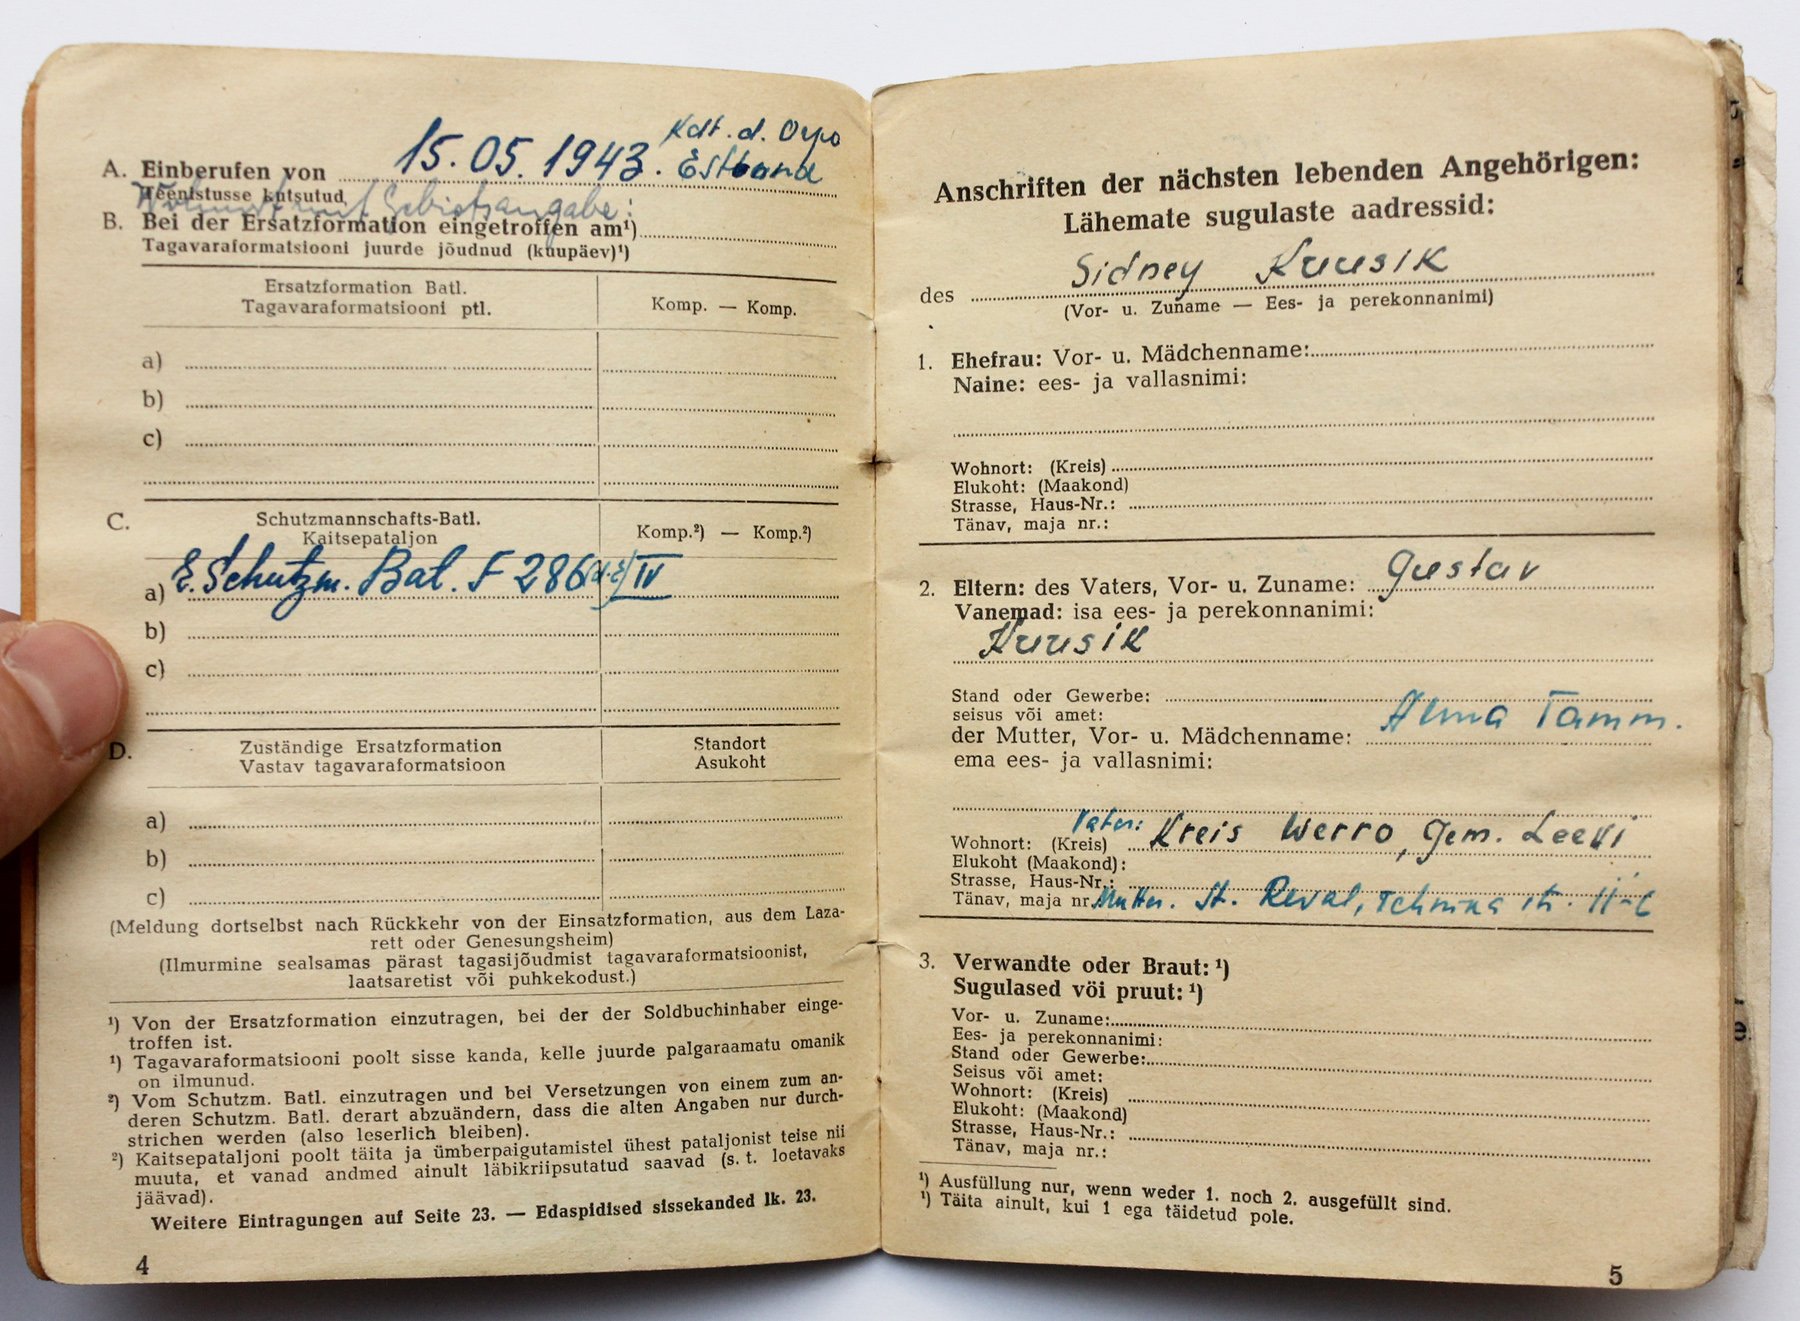 Kdt. d. Orpo
A. Einberufen von 15.05.1943. Estland
Teenistusse kutsutud
Gebietsangabe:
B. Bei der Ersatzformation eingetroffen am¹)
Tagavaraformatsiooni juurde jõudnud (kuupäev)¹)
Ersatzformation Batl.
Tagavaraformatsiooni ptl.
Komp. — Komp.
a)
b)
c)
C. Schutzmannschafts-Batl.
Kaitsepataljon
Komp.²) — Komp.²)
a) E. Schutzm. Bat. F 286 IV
b)
c)
D. Zuständige Ersatzformation
Vastav tagavaraformatsioon
Standort
Asukoht
a)
b)
c)
(Meldung dortselbst nach Rückkehr von der Einsatzformation, aus dem Laza-
rett oder Genesungsheim)
(Ilmurmine sealsamas pärast tagasijõudmist tagavaraformatsioonist,
laatsaretist või puhkekodust.)
¹) Von der Ersatzformation einzutragen, bei der der Soldbuchinhaber einge-
troffen ist.
¹) Tagavaraformatsiooni poolt sisse kanda, kelle juurde palgaraamatu omanik
on ilmunud.
²) Vom Schutzm. Batl. einzutragen und bei Versetzungen von einem zum an-
deren Schutzm. Batl. derart abzuändern, dass die alten Angaben nur durch-
strichen werden (also leserlich bleiben).
²) Kaitsepataljoni poolt täita ja ümberpaigutamistel ühest pataljonist teise nii
muuta, et vanad andmed ainult läbikriipsutatud saavad (s. t. loetavaks
jäävad).
Weitere Eintragungen auf Seite 23. — Edaspidised sissekanded lk. 23.
4
Anschriften der nächsten lebenden Angehörigen:
Lähemate sugulaste aadressid:
des Sidney Kuusik
(Vor- u. Zuname — Ees- ja perekonnanimi)
1. Ehefrau: Vor- u. Mädchenname:
Naine: ees- ja vallasnimi:
Wohnort: (Kreis)
Elukoht: (Maakond)
Strasse, Haus-Nr.:
Tänav, maja nr.:
2. Eltern: des Vaters, Vor- u. Zuname: Gustav
Vanemad: isa ees- ja perekonnanimi:
Kuusik
Stand oder Gewerbe:
seisus või amet:
der Mutter, Vor- u. Mädchenname: Anna Tamm.
ema ees- ja vallasnimi:
Vater:
Wohnort: (Kreis) Kreis Werro, Gem. Leevi
Elukoht (Maakond):
Strasse, Haus-Nr.:
Tänav, maja nr. Mutter. St. Reval, 11-6
3. Verwandte oder Braut: ¹)
Sugulased vöi pruut: ¹)
Vor- u. Zuname:
Ees- ja perekonnanimi:
Stand oder Gewerbe:
Seisus või amet:
Wohnort: (Kreis)
Elukoht: (Maakond)
Strasse, Haus-Nr.:
Tänav, maja nr.:
¹) Ausfüllung nur, wenn weder 1. noch 2. ausgefüllt sind.
¹) Täita ainult, kui 1 ega täidetud pole.
5